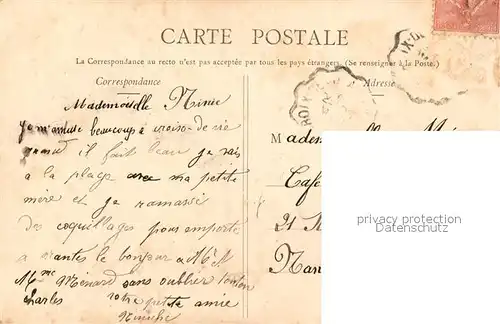 CARTE POSTALE
La Correspondance au recto n'est pas acceptée par tous les pays étrangers. (Se renseigner à la Poste.)
Correspondance
Adresse
Mademoiselle Ninie
je m'amuse beaucoups a croisa-de-vie
quand il fait beau je vais
a la plage avec ma petite
mère et je ramasse
des coquillages pour emporté
a nantes le bonjour a Mr
Mme Ménard sans oublier tonton
charles votre petite amie
M
Cafe
21 R
Nan
privacy protection
Datenschutz